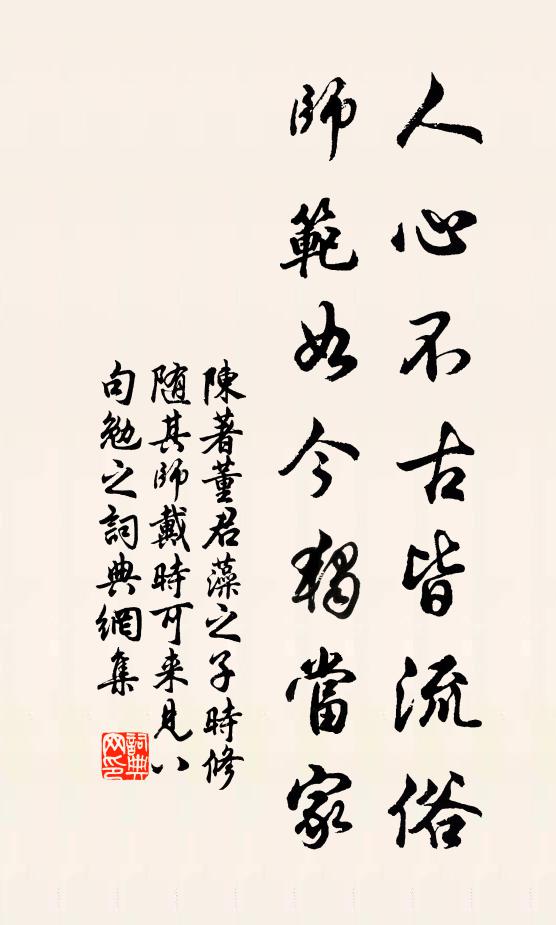 人心不古皆流俗
師範如今獨當家
陳著董君藻之子時修
随其師戴時可来見以
句勉之詞典網集
詞典
网印